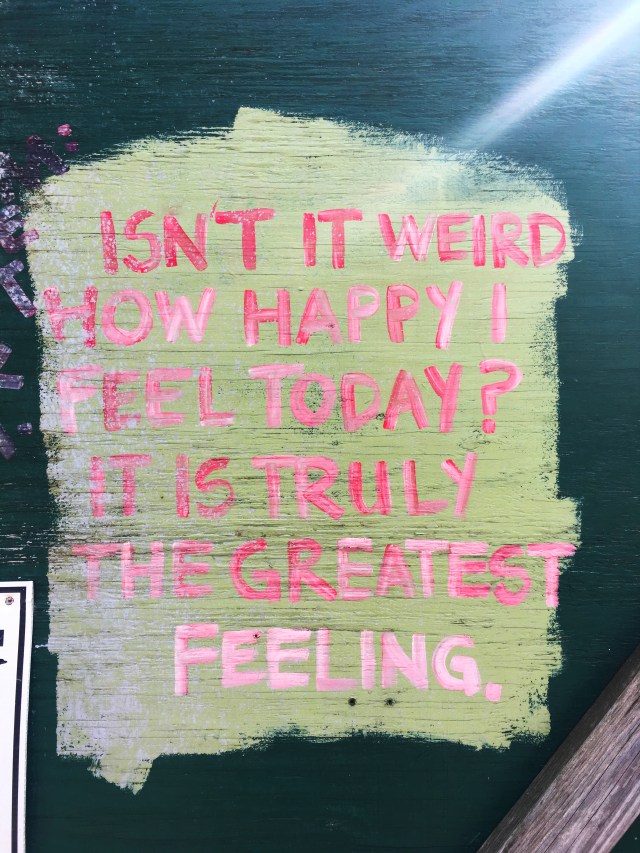 ISN'T IT WEIRD
HOW HAPPY I
FEEL TODAY?
IT IS TRULY
THE GREATEST
FEELING.